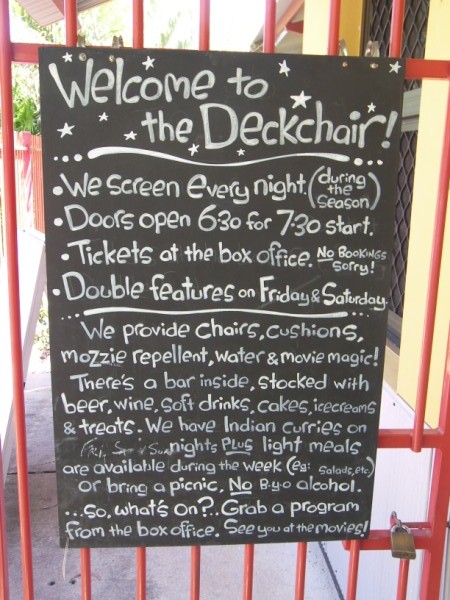 Welcome to
the Deckchair!
• We screen every night. (during the season)
• Doors open 6:30 for 7:30 start.
• Tickets at the box office. No Bookings Sorry!
• Double features on Friday & Saturday.
We provide chairs, cushions,
mozzie repellent, water & movie magic!
There's a bar inside, stocked with
beer, wine, soft drinks, cakes, icecreams
& treats. We have Indian curries on
nights PLUS light meals
are available during the week (eg: salads, etc)
or bring a picnic, No B.y.o alcohol.
...so, what's on?.. Grab a program
from the box office. See you at the movies!